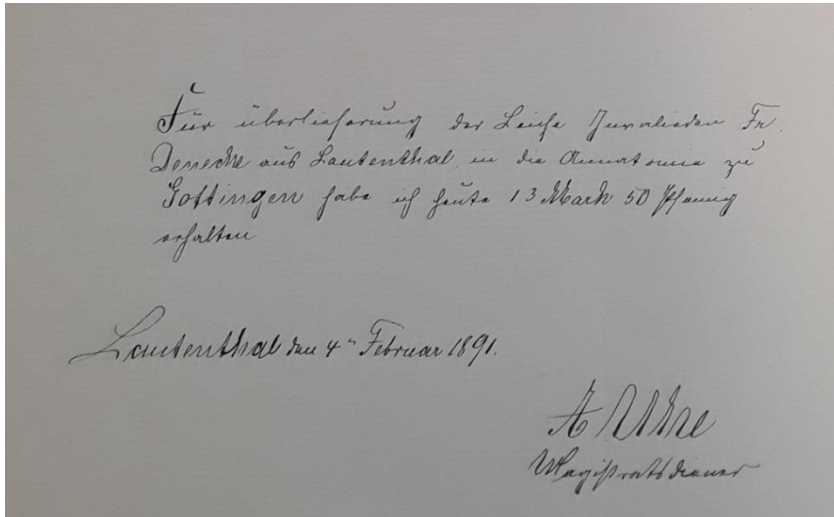 Für überlieferung der Leiche Invalieden Fr.
Denecke aus Lautenthal, in die Annatomie zu
Gottingen habe ich heute 13 Mark 50 Pfennig
erhalten
Lautenthal den 4ⁿ Februar 1891.
A
Magistratsdiener